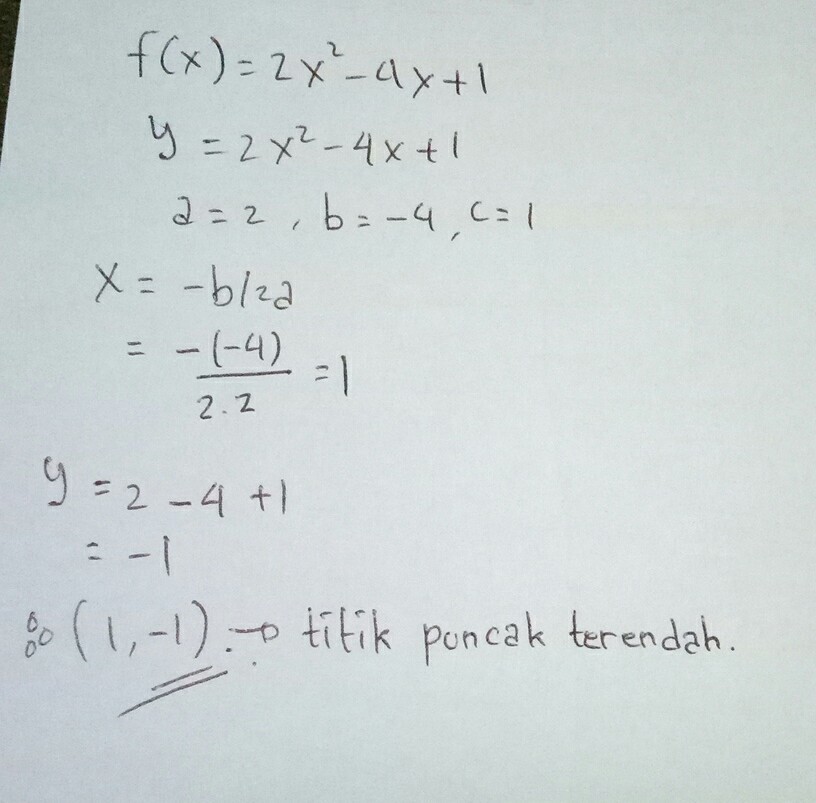 f(x) = 2x² - 4x + 1
y = 2x² - 4x + 1
a = 2 , b = -4 , c = 1
x = -b/2a
= -(-4)/2.2 = 1
y = 2 - 4 + 1
= -1
∴ (1, -1). → titik puncak terendah.